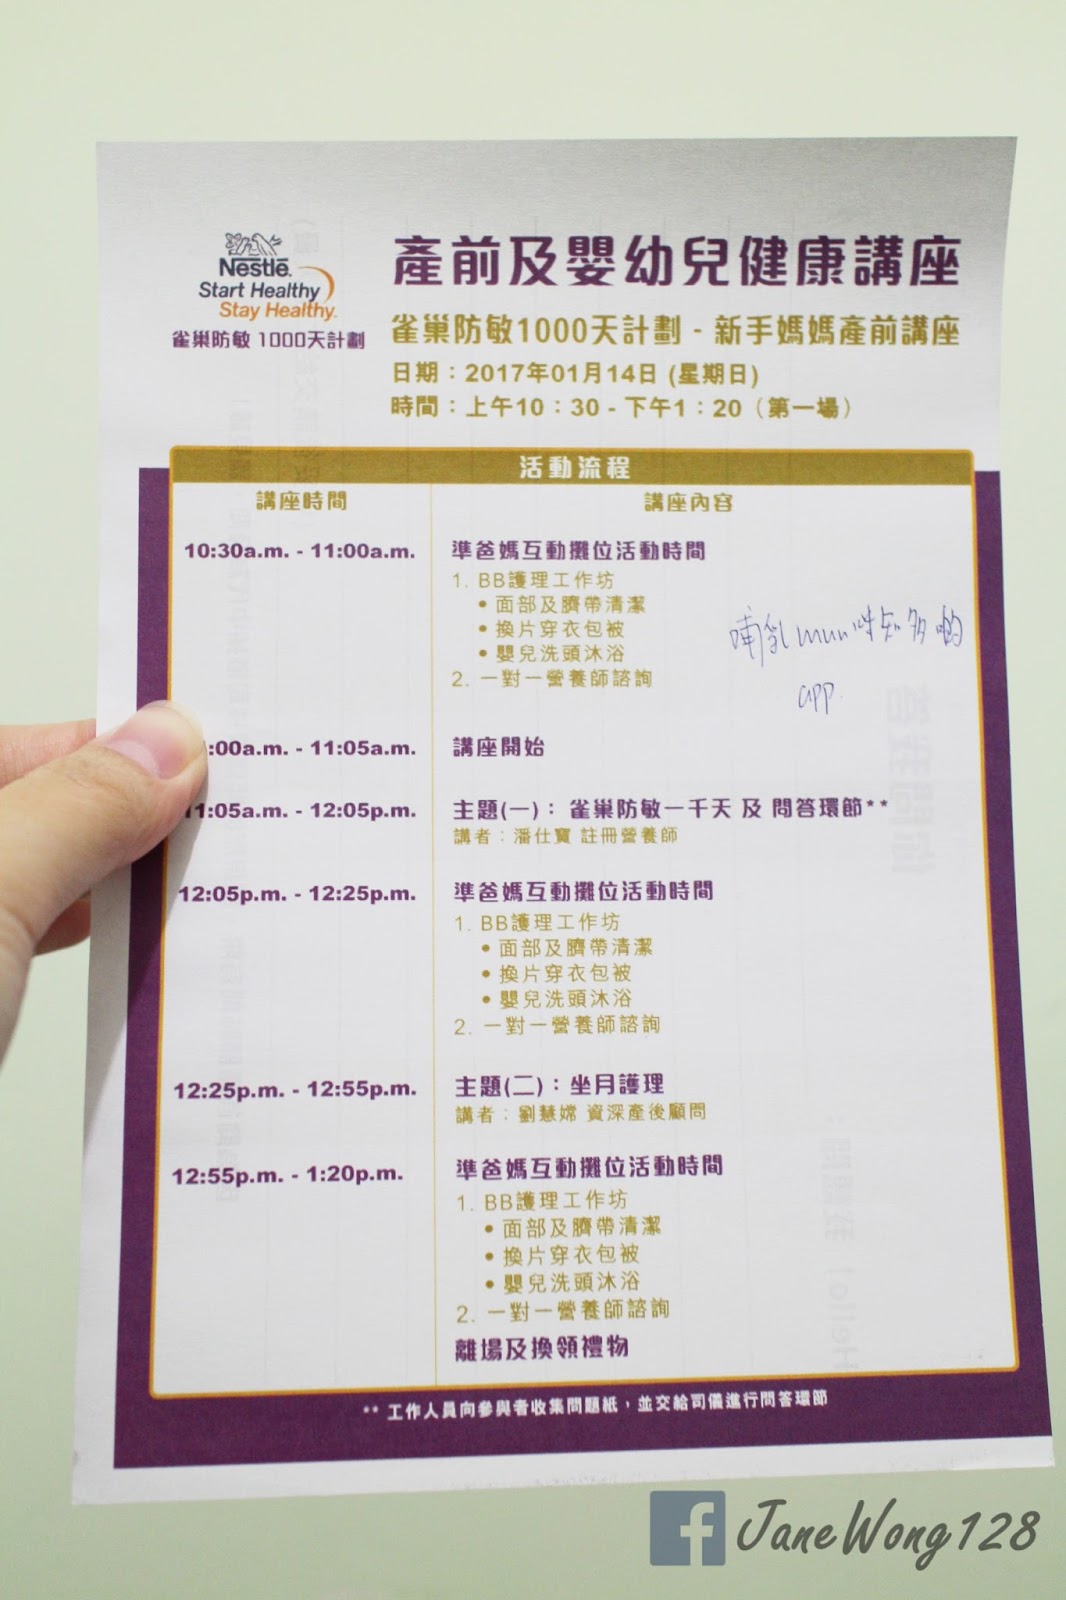 Nestlé.
Start Healthy
Stay Healthy.
雀巢防敏 1000天計劃
產前及嬰幼兒健康講座
雀巢防敏1000天計劃 - 新手媽媽產前講座
日期：2017年01月14日 (星期日)
時間：上午10：30 - 下午1：20（第一場）
活動流程
講座時間 講座內容
10:30a.m. - 11:00a.m. 準爸媽互動攤位活動時間
1. BB護理工作坊
• 面部及臍帶清潔
• 換片穿衣包被
• 嬰兒洗頭沐浴
2. 一對一營養師諮詢
哺乳mum咩知多啲
app.
:00a.m. - 11:05a.m. 講座開始
11:05a.m. - 12:05p.m. 主題(一)： 雀巢防敏一千天 及 問答環節**
講者：潘仕寶 註冊營養師
12:05p.m. - 12:25p.m. 準爸媽互動攤位活動時間
1. BB護理工作坊
• 面部及臍帶清潔
• 換片穿衣包被
• 嬰兒洗頭沐浴
2. 一對一營養師諮詢
12:25p.m. - 12:55p.m. 主題(二)：坐月護理
講者：劉慧嫦 資深產後顧問
12:55p.m. - 1:20p.m. 準爸媽互動攤位活動時間
1. BB護理工作坊
• 面部及臍帶清潔
• 換片穿衣包被
• 嬰兒洗頭沐浴
2. 一對一營養師諮詢
離場及換領禮物
** 工作人員向參與者收集問題紙，並交給司儀進行問答環節
JaneWong128